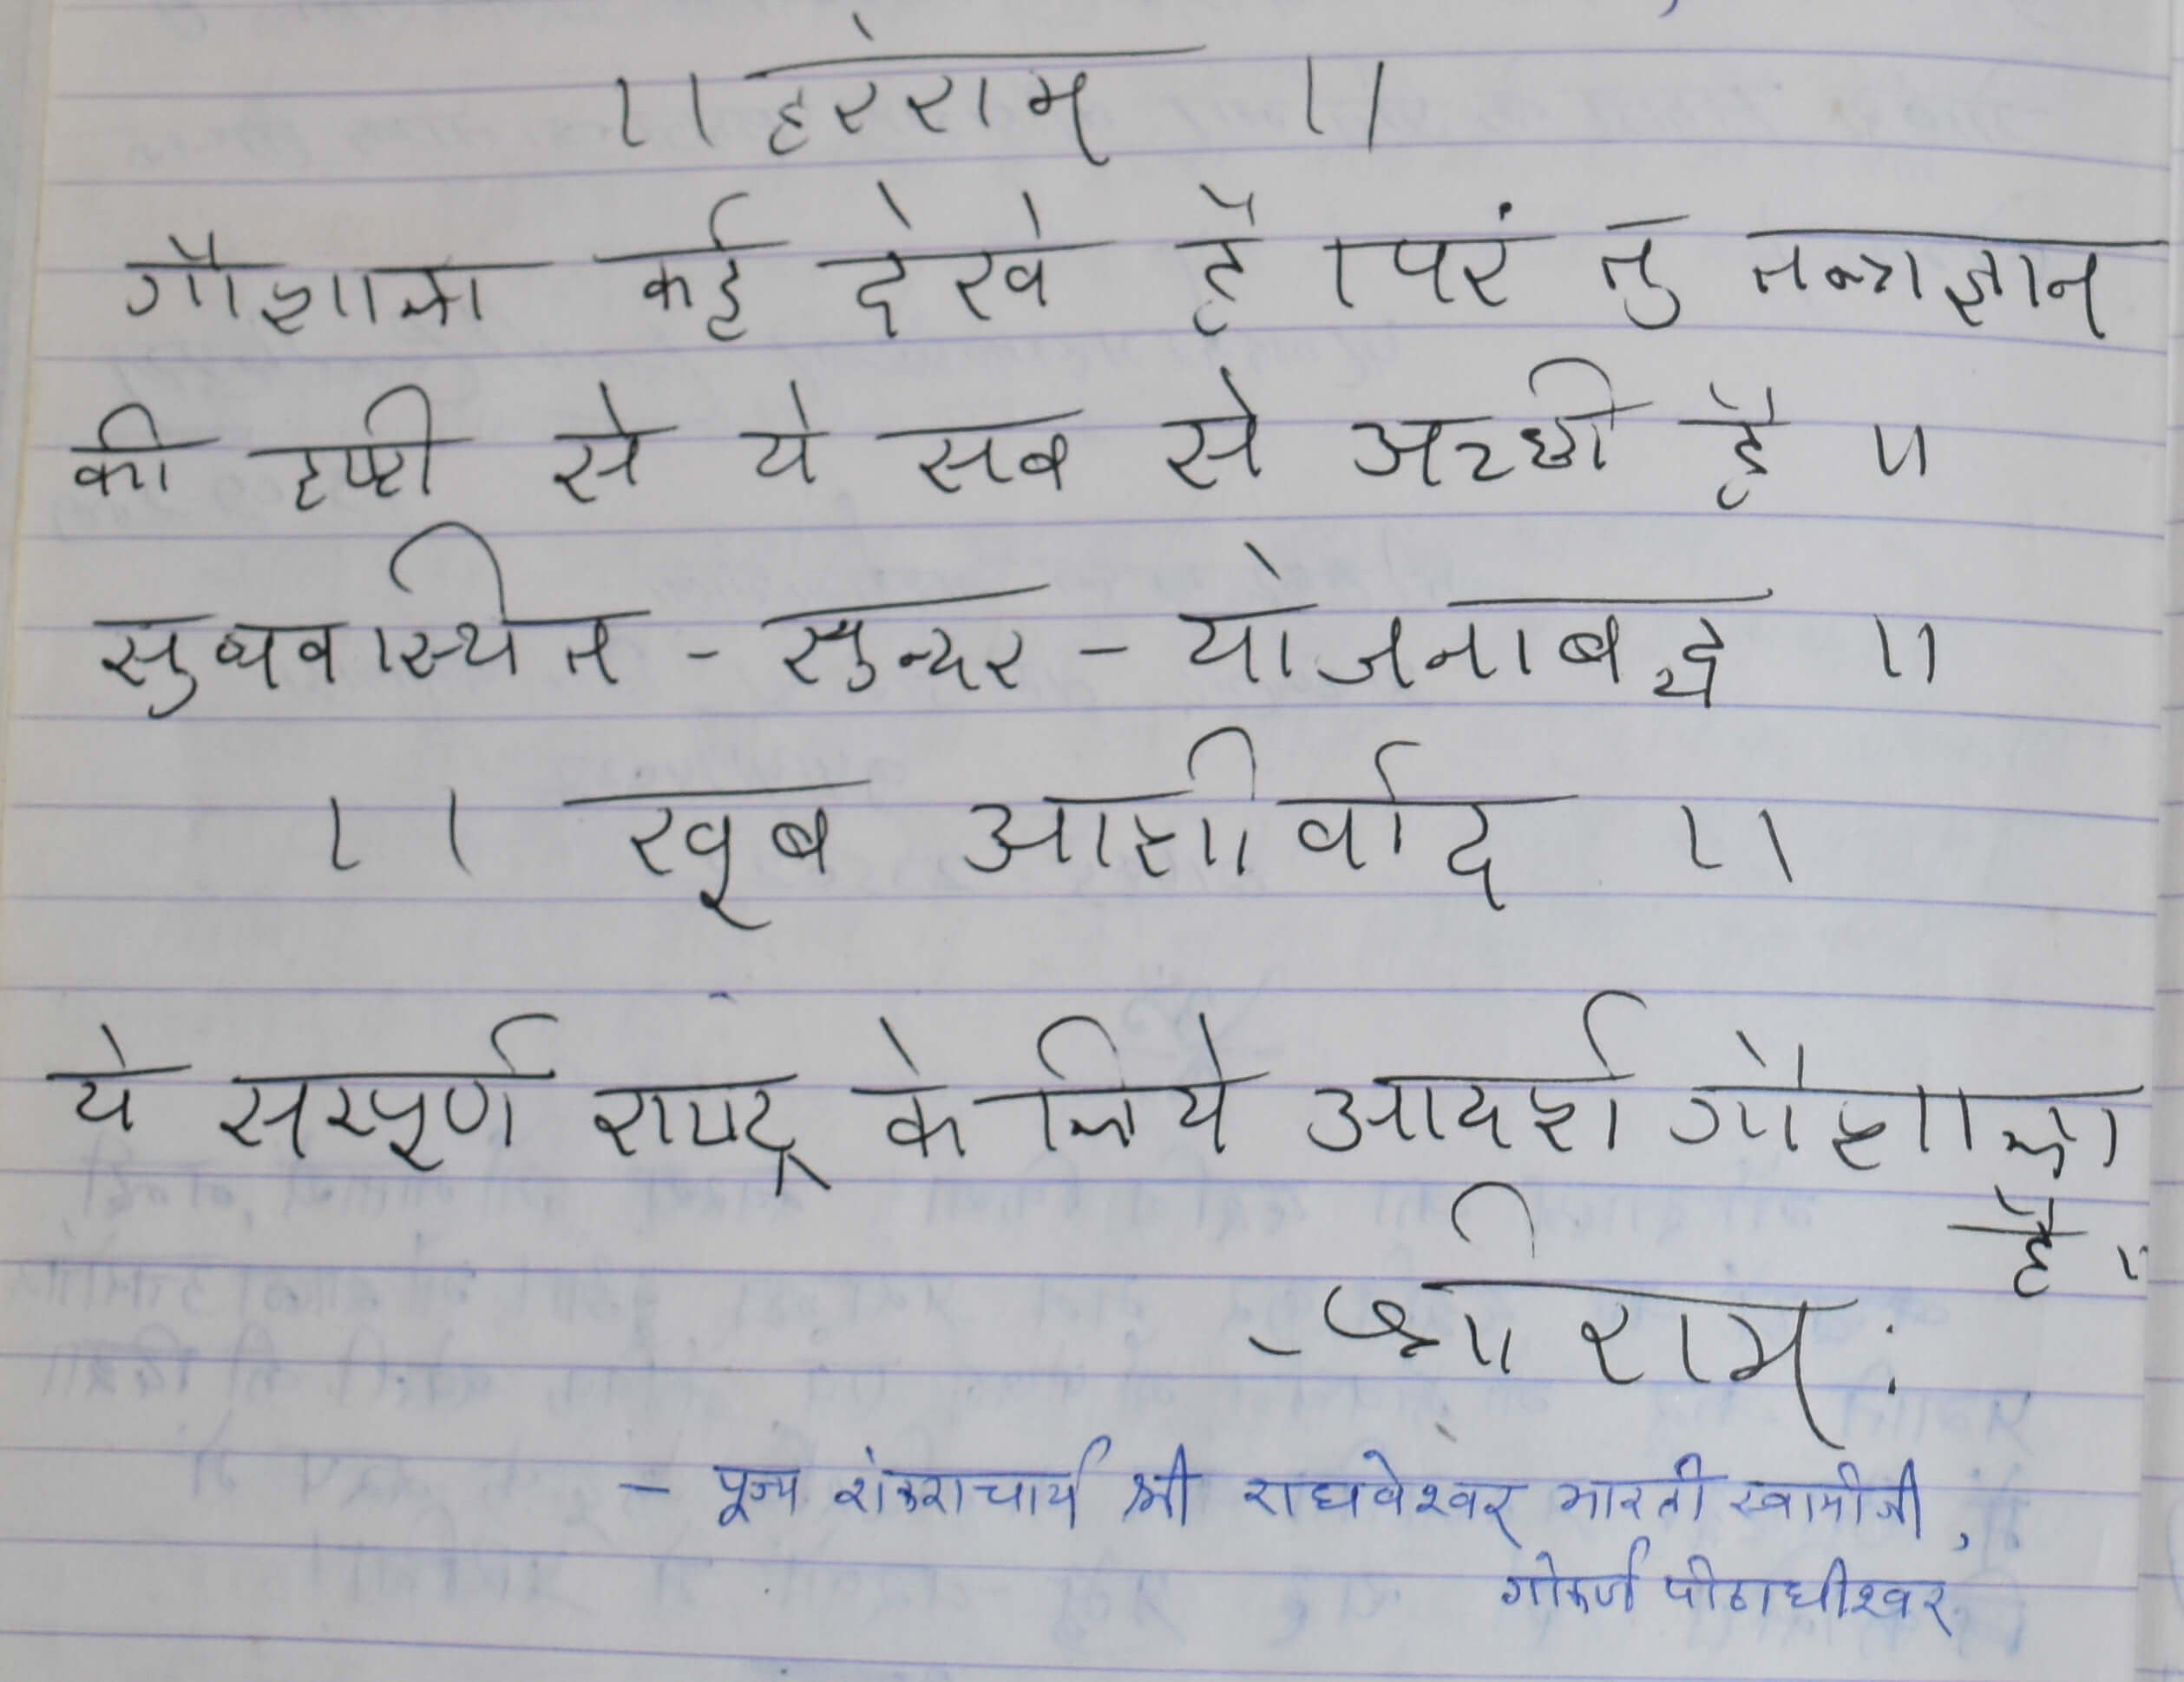 ।। हरेराम ।।
गौशाला कई देखे है । परंतु तन्त्रज्ञान
की दृष्टी से ये सब से अच्छी है ॥
सुव्यवास्थित - सुन्दर - योजनाबद्ध ॥
।। खूब आशीर्वाद ।।
ये सम्पूर्ण राष्ट्र के लिये आदर्श गौशाला
है ॥
श्रीराम :
- पूज्य शंकराचार्य श्री राघवेश्वर भारती स्वामीजी,
गोकर्ण पीठाधीश्वर